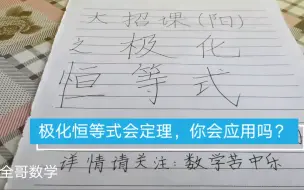 大招课(陌)
之极化
恒等式
极化恒等式会定理，你会应用吗？
全哥数学
详情请关注：数学苦中乐